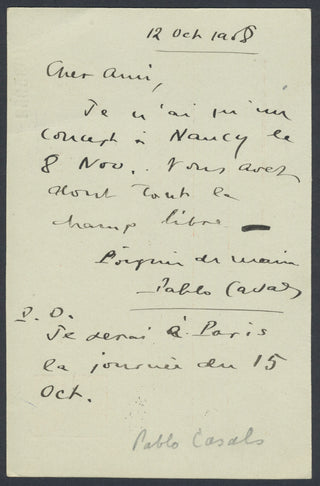 12 Oct 1908
Cher Ami,
Je n'ai qu'un
concert à Nancy le
8 Nov.. Vous avez
dont tout le
champ libre —
Poignée de main
Pablo Casals
P. S.
Je serai à Paris
la journée du 15
Oct.
Pablo Casals